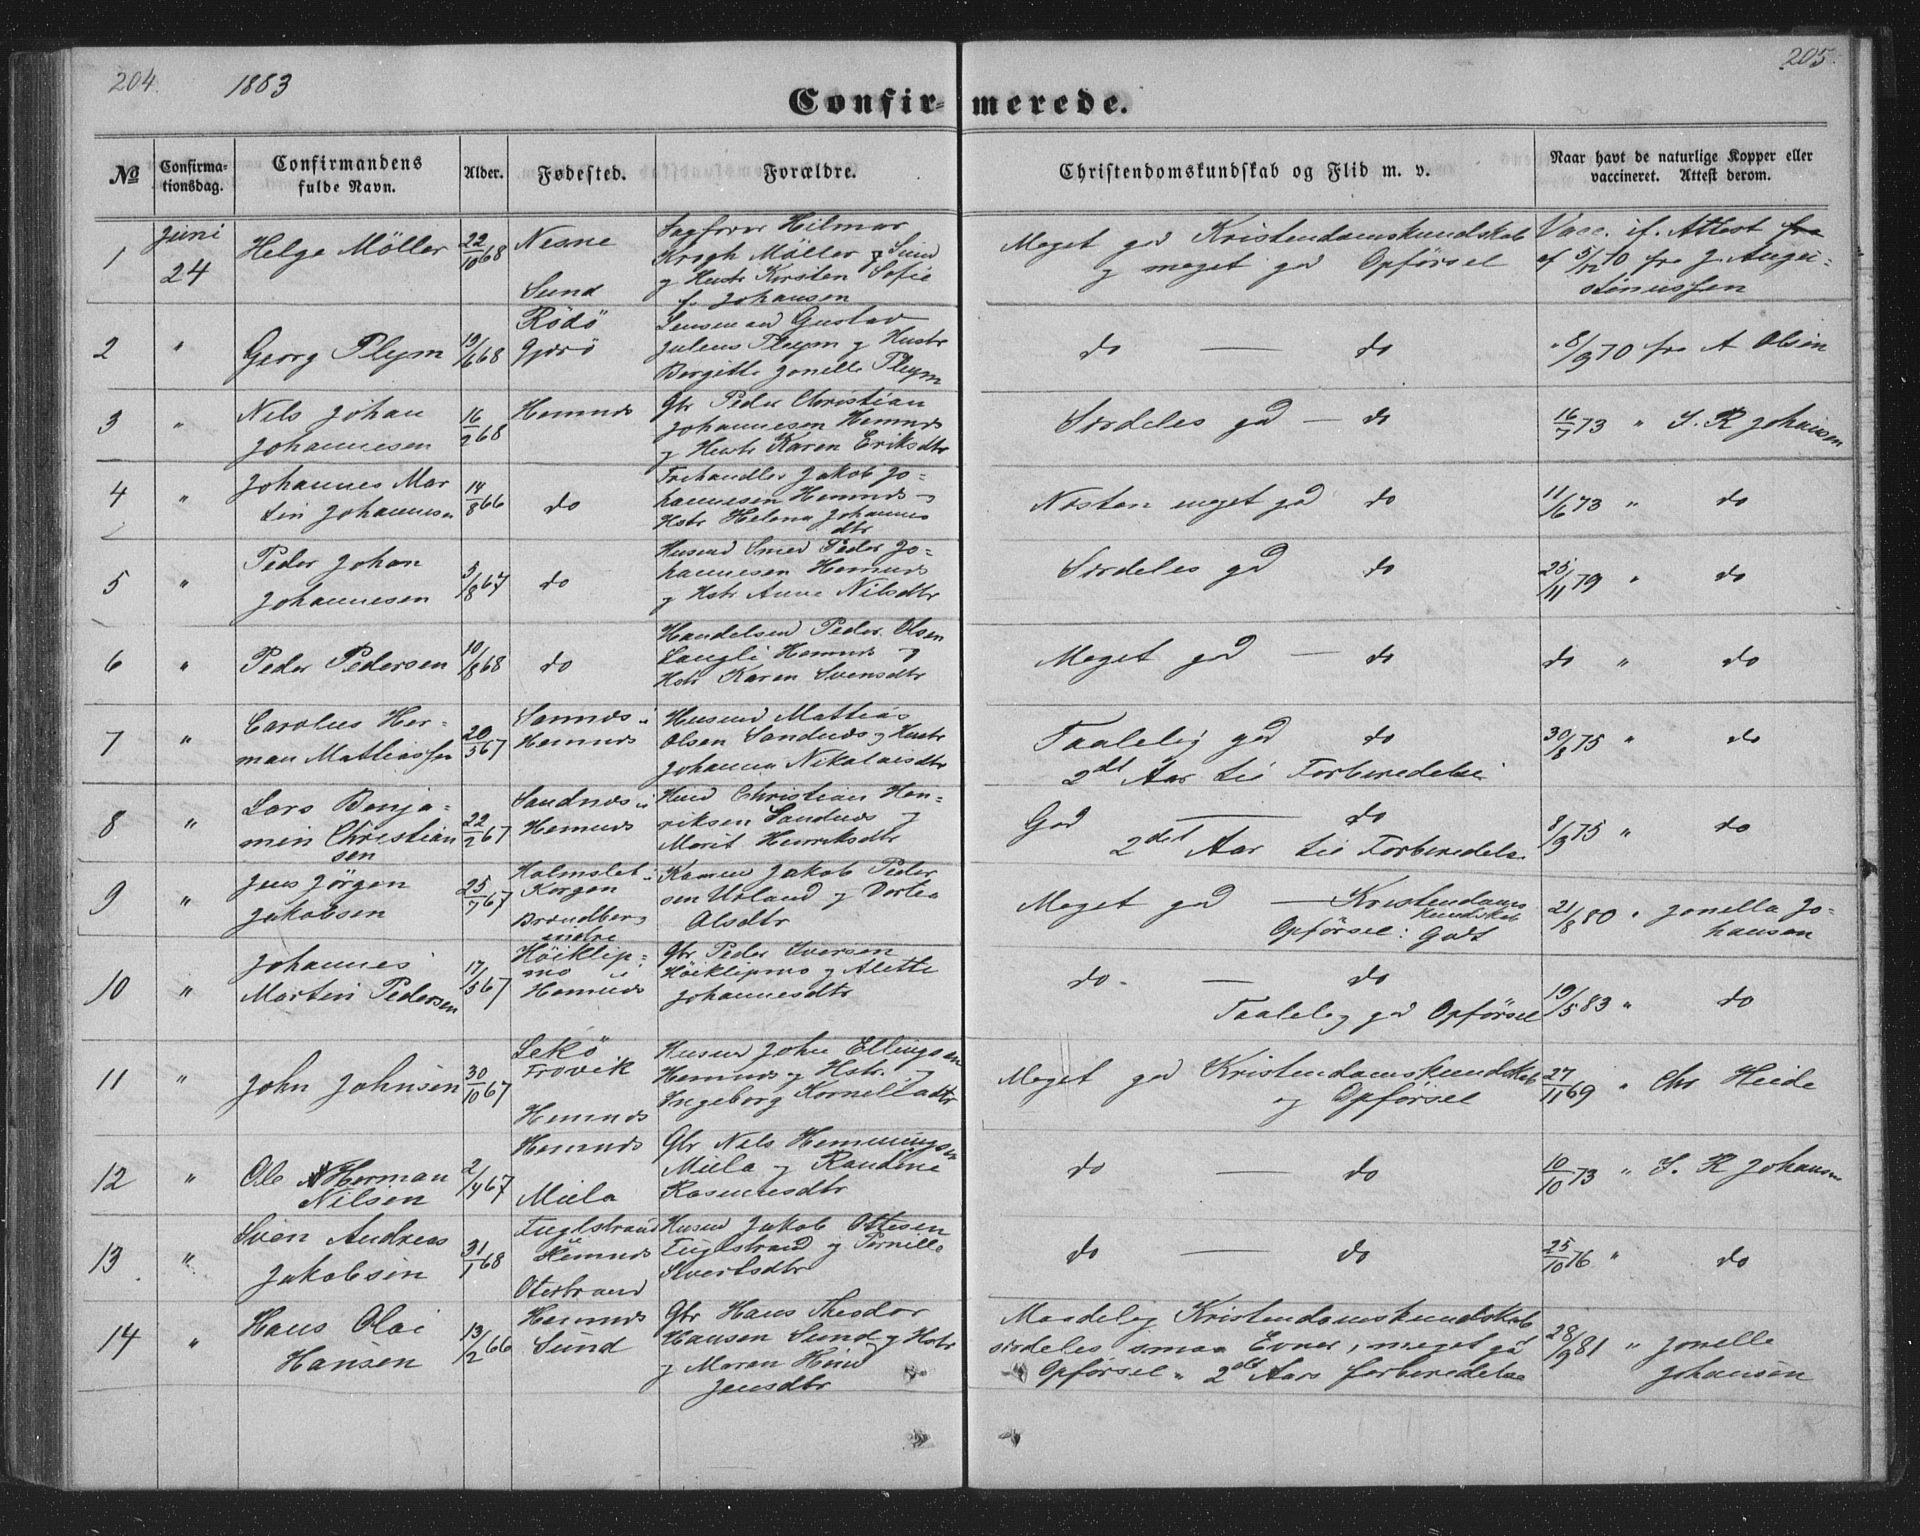 204.
1883
205.
Confirmerede.
No
Confirmationsdag.
Confirmandens fulde Navn.
Alder.
Fødested.
Forældre.
Christendomskundskab og Flid m. v.
Naar havt de naturlige Kopper eller vaccineret. Attest derom.
1 Juni 24 Helge Möller 22/10 68 Nesne Sund
Sagfører Hilmar
Krogh Möller og Sund
og Hustr Kirsten Sofie
f. Johansen
Meget god Kristendomskundskab
og meget god Opførsel
Vacc. if. Attest fra
af 5/12 70 fra J. Augu-
stinussen
2 " Georg Pleym 19/6 68 Rödö Gjerö
Lensmand Gustav
Julius Pleym og Hustr
Bergitte Jonelle Pleym
do — do
" 8/9 70 fra A Olsen
3 " Nils Johan
Johannesen 16/2 68 Hemnes
Gbr Peder Christian
Johannesen Hemnes
og Hustr Karen Eriksdtr
Særdeles god — do
16/7 73 " S. R Johansen
4 " Johannes Mar
tin Johannesen 14/8 66 do
Frihandler Jakob Jo-
hannesen Hemnes og
Hstr Helena Johannes
dtr
Næsten meget god do
11/6 73 " do
5 " Peder Johan
Johannesen 5/8 67 do
Husmd Smed Peder Jo-
hannesen Hemnes
og Hstr Anne Nilsdtr
Særdeles god do
25/11 79 " do
6 " Peder Pedersen 10/8 68 do
Handelsmd Peder Olsen
Langli Hemnes og
Hstr Karen Svensdtr
Meget god — do
do " do
7 " Carolus Her-
man Mathiassen 20/5 67 Sannes i
Hemnes
Husmd Mattias
Olsen Sandnes og Hustr
Johanna Nikolaisdtr
Taalelig god do
2det Aar til Forberedelse
30/8 75 " do
8 " Lars Benja-
min Christian
sen 22/2 67 Sandnes i
Hemnes
Hmd Christian Hen-
riksen Sandnes og
Marit Henriksdtr
God — do
2det Aar til Forberedelse
8/9 75 " do
9 " Jens Jörgen
Jakobsen 25/7 67 Holmslet i
Korgen
Brændberg
indre
Jakob Peder
sen og Dortea
Olsdtr
Meget god — Kristendoms
kundskab
Opførsel: Godt
21/8 80 " Jonella Jo-
hansen
10 " Johannes
Martin Pedersen 17/5 67 Höiklip-
mo i
Hemnes
Gbr Peder Iversen
Höiklipmo og Alette
Johannesdtr
do — do
Taalelig god Opførsel
19/5 83 " do
11 " John Johnsen 30/10 67 Lekö
Frovik
Hemnes
Husmd John Ellingsen
Hemnes og Hstr.
Ingeborg Korneliadtr
Meget god Kristendomskundskab
og Opførsel
27/11 69 " Chr Heide
12 " Ole Herman
Nilsen 2/4 67 Hemnes
Miela
Gbr Nils Hemmingsen
Miela og Randine
Rasmusdtr
do — do
10/10 73 " S. R Johansen
13 " Sven Andreas
Jakobsen 31/1 68 Fuglstrand
i Hemnes
Oterbrand
Husmd Jakob Ottesen
Fuglstrand og Pernille
Sivertsdtr
do — do
25/10 76 " do
14 " Hans Olai
Hansen 13/2 66 Hemnes
Sund
Gbr Hans Theodor
Hansen Sund og Hstr
og Maren
Jensdtr
Maadelig Kristendomskundskab
særdeles smaa Evner, meget god
Opførsel " 2det Aars forberedelse
28/9 81 " Jonelle
Johansen